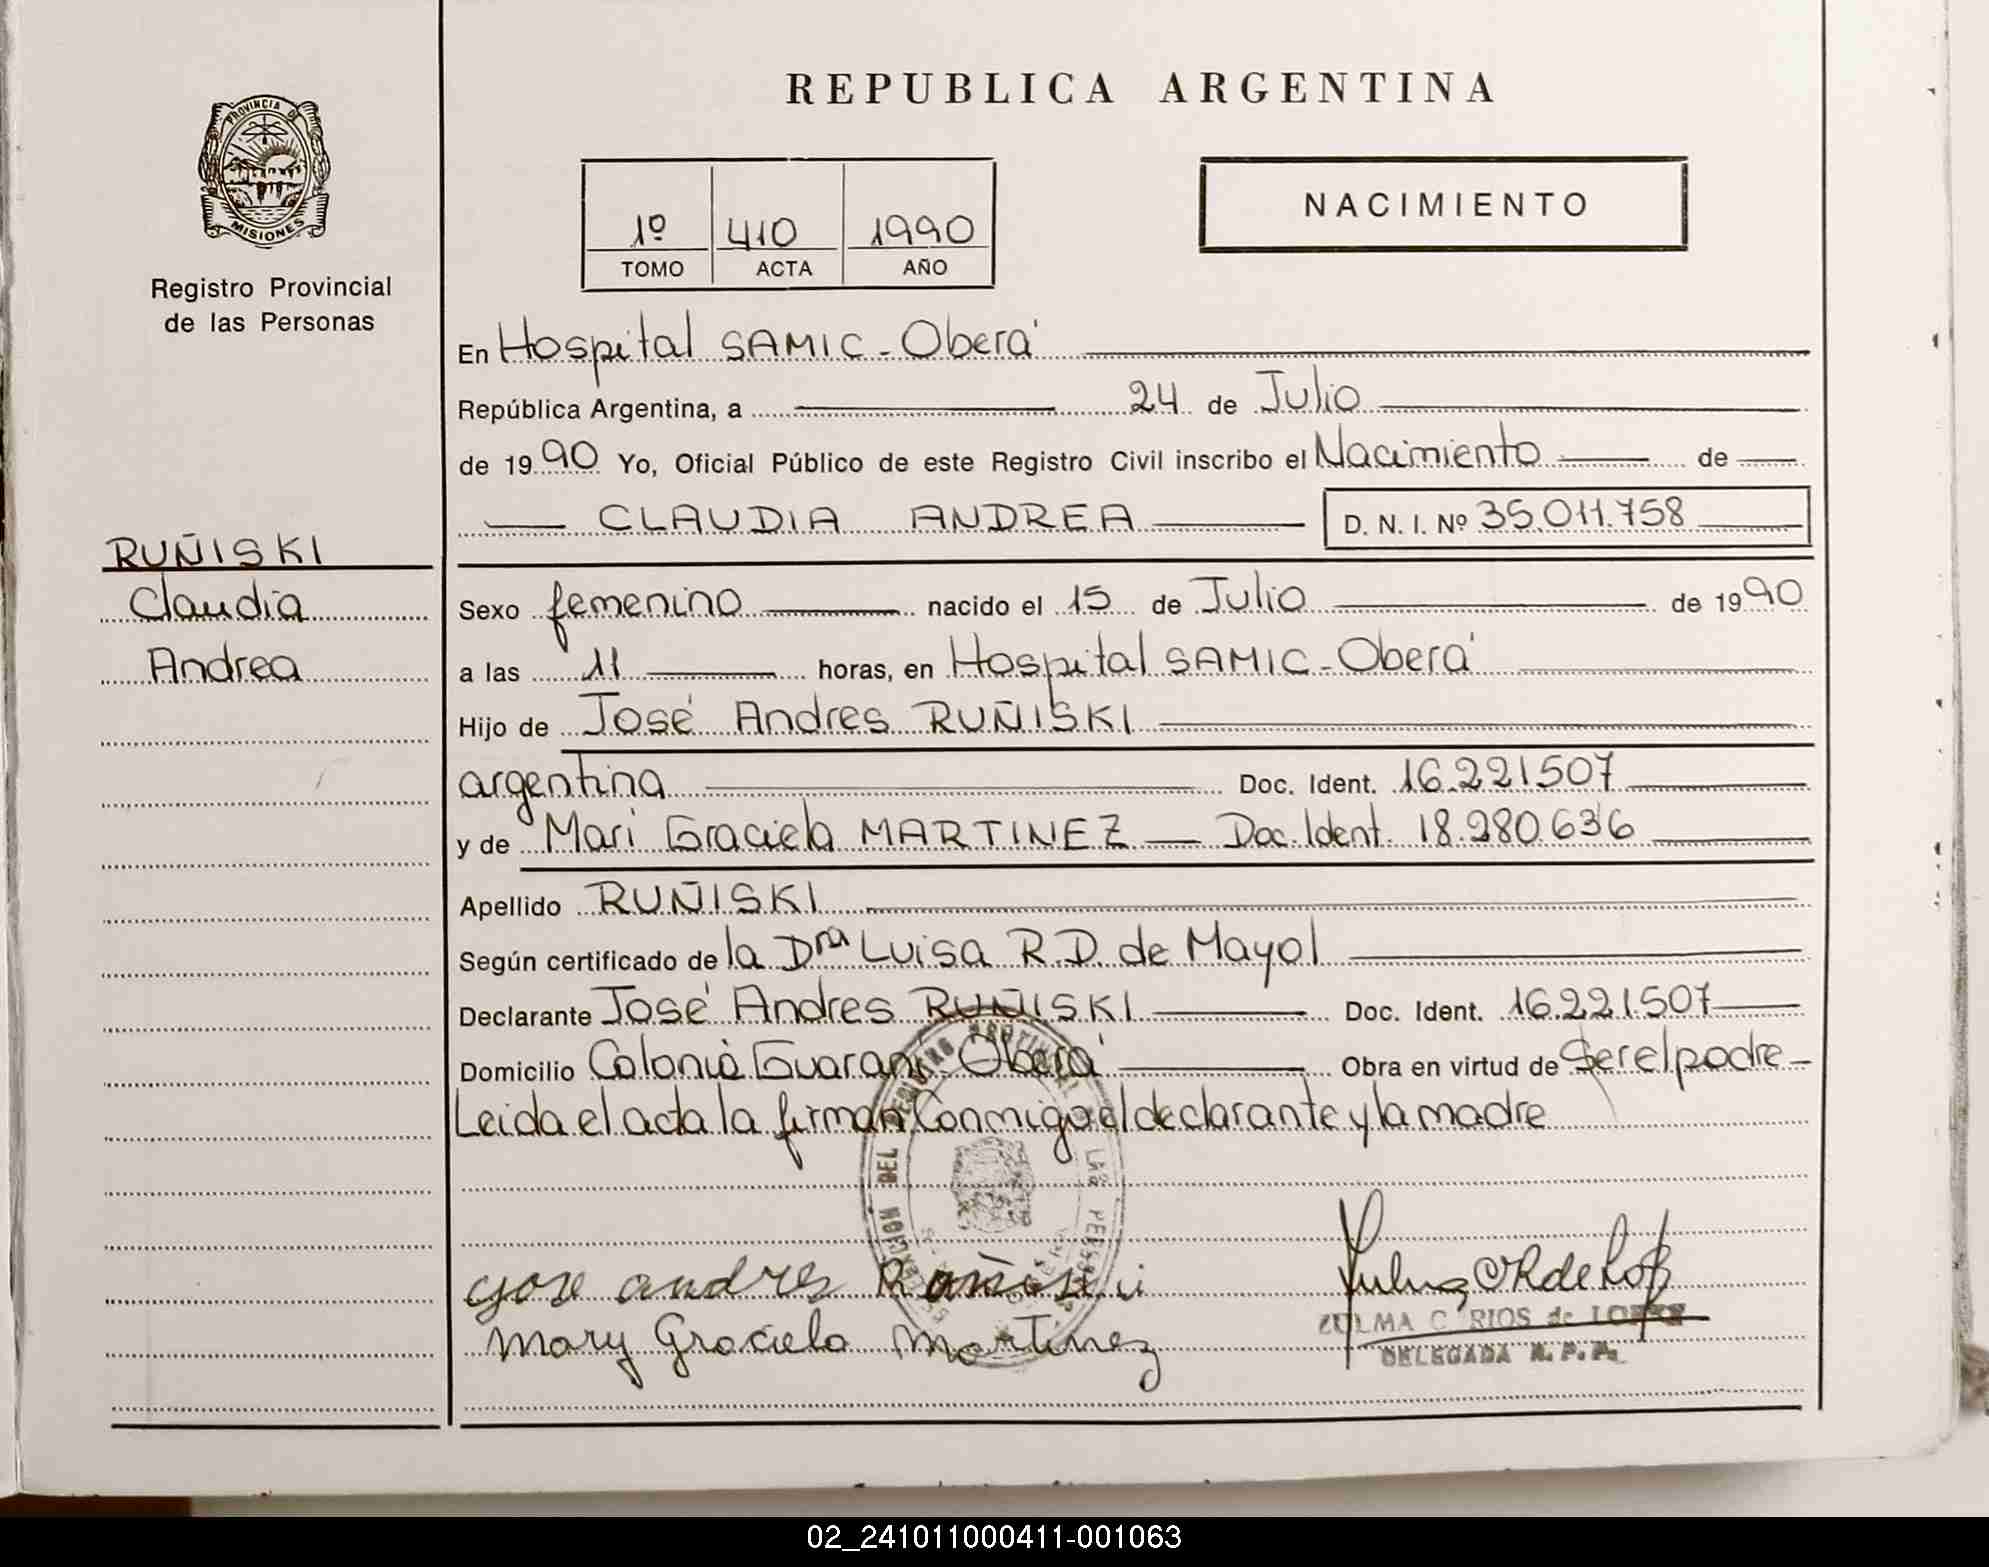 PROVINCIA DE
MISIONES
Registro Provincial
de las Personas
RUÑISKI
Claudia
Andrea
REPUBLICA ARGENTINA
1º 410 1990
TOMO ACTA AÑO
NACIMIENTO
En Hospital SAMIC - Oberá
República Argentina, a 24 de Julio
de 1990 Yo, Oficial Público de este Registro Civil inscribo el Nacimiento de
CLAUDIA ANDREA D. N. I. Nº 35.011.758
Sexo femenino nacido el 15 de Julio de 1990
a las 11 horas, en Hospital SAMIC - Oberá
Hijo de José Andres RUÑISKI
argentina Doc. Ident. 16.221.507
y de Mari Graciela MARTINEZ — Doc. Ident. 18.280.636
Apellido RUÑISKI
Según certificado de la Dra Luisa R.D. de Mayol
Declarante José Andres RUÑISKI Doc. Ident. 16.221.507
Domicilio Colonia Guaraní - Oberá Obra en virtud de Ser el padre
Leida el acta la firman Conmigo el declarante y la madre
DEL
jose andres Ruñiski
Mary Graciela Martinez
ZULMA C RIOS de LOPEZ
DELEGADA R. P. P.
02_241011000411-001063